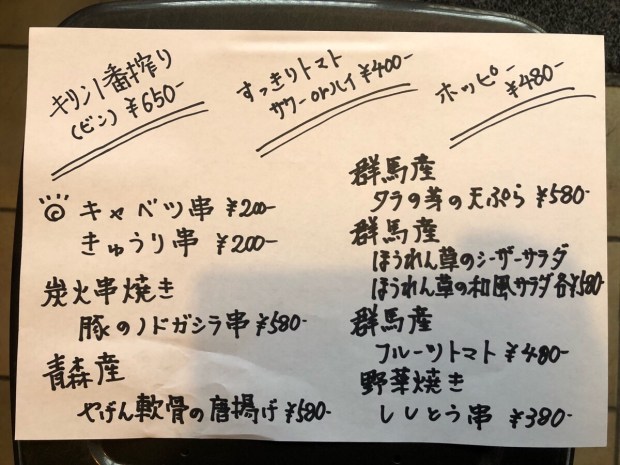 キリン一番搾り
(ビン) ¥650-
すっきりトマト
サワーorハイ ¥400-
ホッピー
¥480-
◎ キャベツ串 ¥200-
きゅうり串 ¥200-
炭火串焼き
豚のノドガシラ串 ¥580-
青森産
やげん軟骨の唐揚げ ¥580-
群馬産
タラの芽の天ぷら ¥580-
群馬産
ほうれん草のシーザーサラダ
ほうれん草の和風サラダ各¥580-
群馬産
フルーツトマト ¥480-
野菜焼き
ししとう串 ¥380-